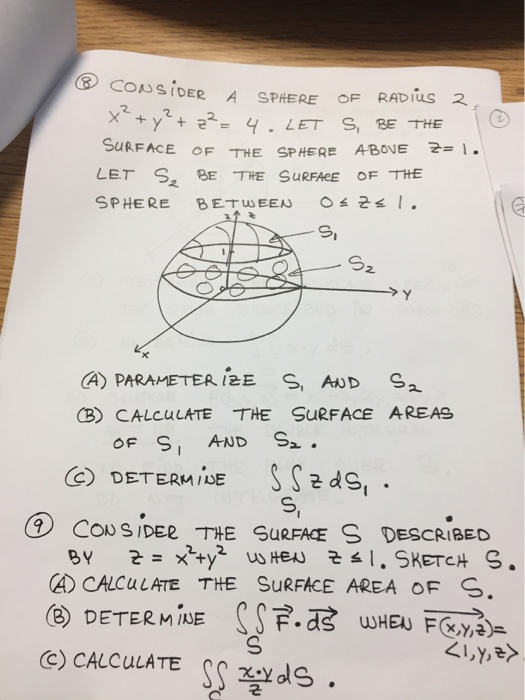 ⑧ CONSIDER A SPHERE OF RADIUS 2,
x² + y² + z² = 4. LET S₁ BE THE
SURFACE OF THE SPHERE ABOVE z=1.
LET S₂ BE THE SURFACE OF THE
SPHERE BETWEEN 0 ≤ z ≤ 1.
2 z
S₁
1
S₂
y
x
(A) PARAMETERIZE S₁ AND S₂
(B) CALCULATE THE SURFACE AREAS
OF S₁ AND S₂.
(C) DETERMINE ∬ z dS₁.
S₁
⑨ CONSIDER THE SURFACE S DESCRIBED
BY z = x²+y² WHEN z ≤ 1. SKETCH S.
(A) CALCULATE THE SURFACE AREA OF S.
(B) DETERMINE ∬ F⃗·dS⃗ WHEN F(x,y,z)=
S
<1,y,z>
(C) CALCULATE ∬ x·y/z dS.
S